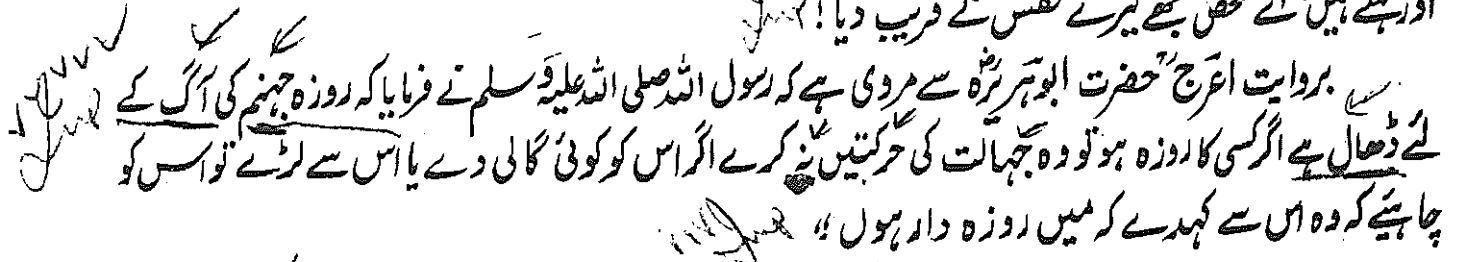 اور کہتے ہیں اے شخص تجھے تیرے نفس نے فریب دیا!
بروایت اعرج حضرت ابوہریرہؓ سے مروی ہے کہ رسول اللہ صلی اللہ علیہ وسلم نے فرمایا کہ روزہ جہنم کی آگ کے
لئے ڈھال ہے اگر کسی کا روزہ ہو تو وہ جہالت کی حرکتیں نہ کرے اگر اس کو کوئی گالی دے یا اس سے لڑے تو اس کو
چاہیئے کہ وہ اس سے کہدے کہ میں روزہ دار ہوں ؛